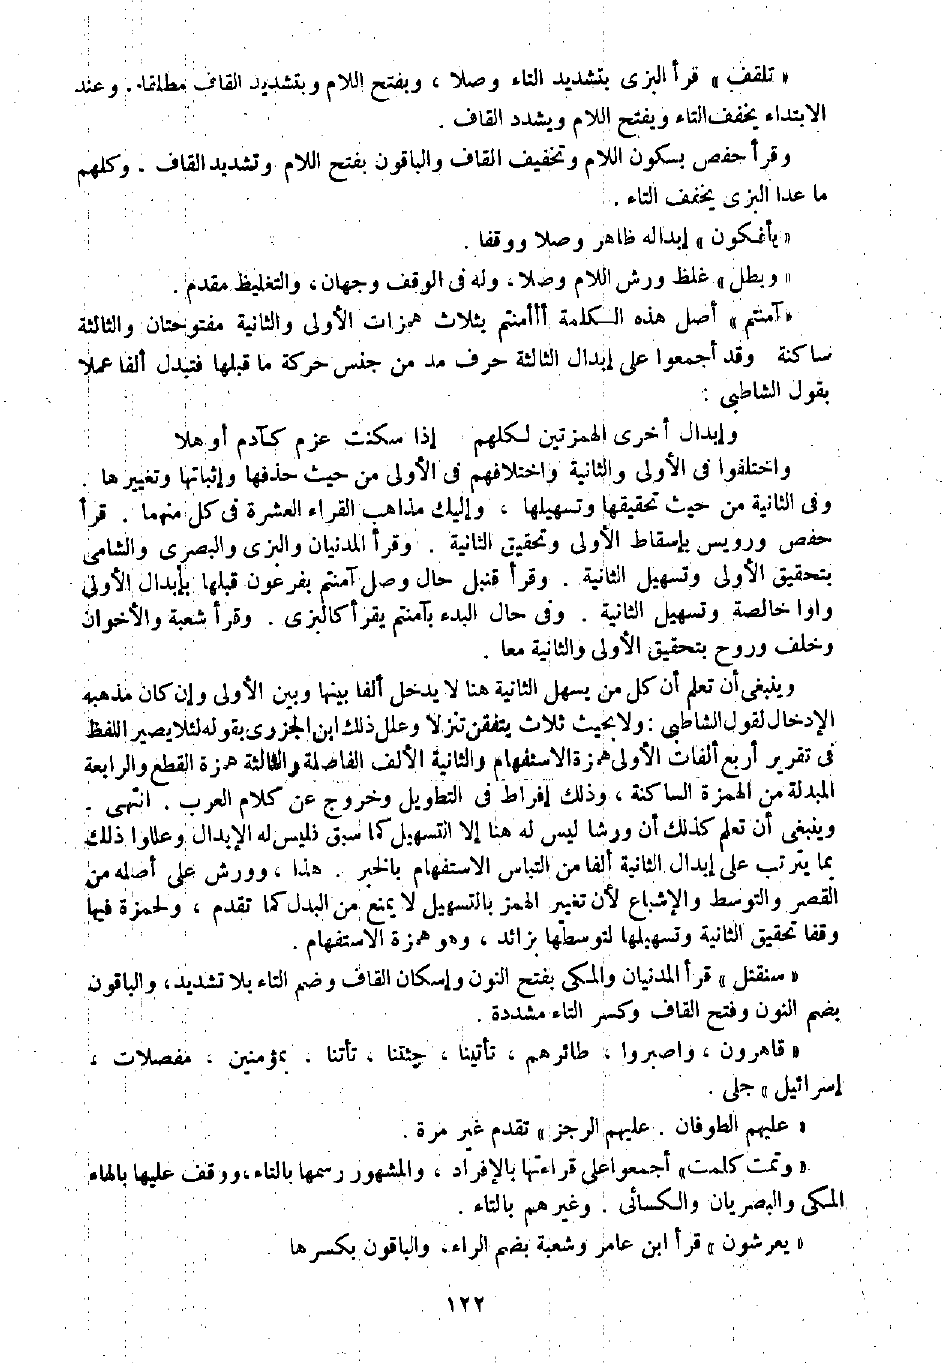 « تلقف » قرأ البزى بتشديد التاء وصلا ، وبفتح اللام وبتشديد القاف مطلقا . وعند
الابتداء يخفف التاء ويفتح اللام ويشدد القاف .
وقرأ حفص بسكون اللام وتخفيف القاف والباقون بفتح اللام وتشديد القاف . وكلهم
ما عدا البزى يخفف التاء .
« يأفكون » إبداله ظاهر وصلا ووقفا .
« وبطل » غلظ ورش اللام وصلا ، وله فى الوقف وجهان ، والتغليظ مقدم .
« آمنتم » أصل هذه الكلمة أأأمنتم بثلاث همزات الأولى والثانية مفتوحتان والثالثة
ساكنة وقد أجمعوا على إبدال الثالثة حرف مد من جنس حركة ما قبلها فتبدل ألفا عملا
بقول الشاطبى :
وإبدال أخرى الهمزتين لكلهم إذا سكنت عزم كآدم أوهلا
واختلفوا فى الأولى والثانية واختلافهم فى الأولى من حيث حذفها وإثباتها وتغييرها .
وفى الثانية من حيث تحقيقها وتسهيلها ، وإليك مذاهب القراء العشرة فى كل منهما . قرأ
حفص ورويس بإسقاط الأولى وتحقيق الثانية . وقرأ المدنيان والبزى والبصرى والشامى
بتحقيق الأولى وتسهيل الثانية . وقرأ قنبل حال وصل آمنتم بفرعون قبلها بإبدال الأولى
واوا خالصة وتسهيل الثانية . وفى حال البدء بآمنتم يقرأ كالبزى . وقرأ شعبة والأخوان
وخلف وروح بتحقيق الأولى والثانية معا .
وينبغى أن تعلم أن كل من يسهل الثانية هنا لا يدخل ألفا بينها وبين الأولى وإن كان مذهبه
الإدخال لقول الشاطبى : ولا بحيث ثلاث يتفقن تنزلا وعلل ذلك ابن الجزرى بقوله لئلا يصير اللفظ
فى تقرير أربع ألفات الأولى همزة الاستفهام والثانية الألف الفاصلة والثالثة همزة القطع والرابعة
المبدلة من الهمزة الساكنة ، وذلك إفراط فى التطويل وخروج عن كلام العرب . انتهى .
وينبغى أن تعلم كذلك أن ورشا ليس له هنا إلا التسهيل كما سبق فليس له الإبدال وعللوا ذلك
بما يترتب على إبدال الثانية ألفا من التباس الاستفهام بالخبر . هذا ، وورش على أصله من
القصر والتوسط والإشباع لأن تغيير الهمز بالتسهيل لا يمنع من البدل كما تقدم ، ولحمزة فيها
وقفا تحقيق الثانية وتسهيلها لتوسطها بزائد ، وهو همزة الاستفهام .
« سنقتل » قرأ المدنيان والمكى بفتح النون وإسكان القاف وضم التاء بلا تشديد ، والباقون
بضم النون وفتح القاف وكسر التاء مشددة .
« قاهرون ، واصبروا ، طائرهم ، تأتينا ، جئتنا ، تأتنا . بمؤمنين ، مفصلات ،
إسرائيل » جلى .
« عليهم الطوفان . عليهم الرجز » تقدم غير مرة .
« وتمت كلمت » أجمعوا على قراءتها بالإفراد ، والمشهور رسمها بالتاء ، ووقف عليها بالهاء
المكى والبصريان والكسائى . وغيرهم بالتاء .
« يعرشون » قرأ ابن عامر وشعبة بضم الراء ، والباقون بكسرها
١٢٢